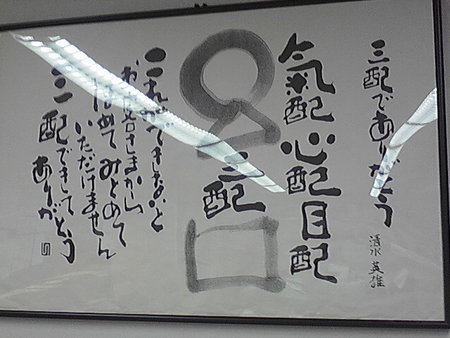 三配でありがとう
清水英雄
氣配 心配 目配
三配
これができないと
お客さまから
ほめてみとめて
いただけません
三配できて
ありがとう